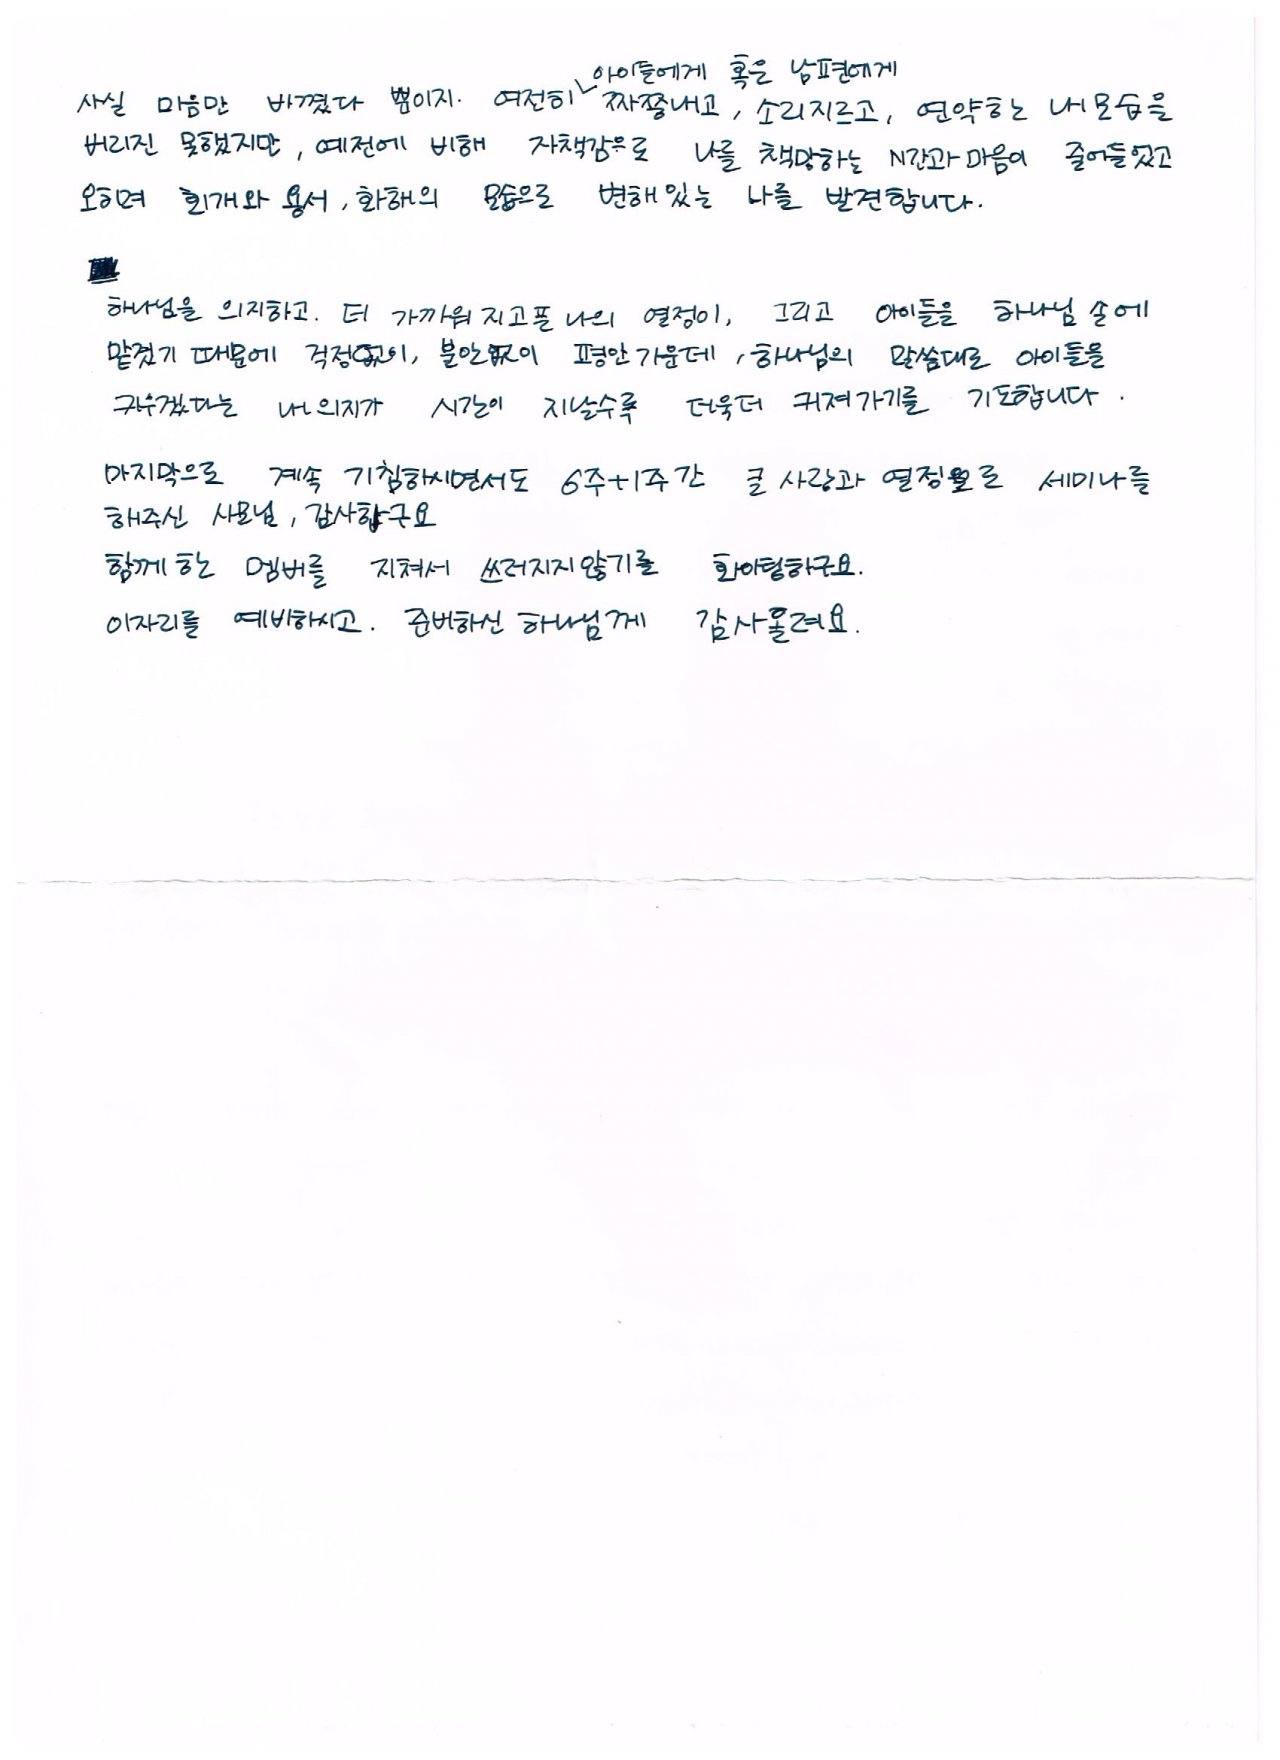 아이들에게 혹은 남편에게
사실 마음만 바꼈다 뿐이지. 여전히 짜증내고, 소리지르고, 연약하는 내모습을
버리진 못했지만, 예전에 비해 자책감으로 나를 책망하는 시간과 마음이 줄어들었고
오히려 회개와 용서, 화해의 모습으로 변해있는 나를 발견합니다.
하나님을 의지하고. 더 가까워지고픈 나의 열정이, 그리고 아이들을 하나님 손에
맡겼기 때문에 걱정없이, 불안없이 평안가운데, 하나님의 말씀대로 아이들을
키우겠다는 내의지가 시간이 지날수록 더욱더 커져가기를 기도합니다.
마지막으로 계속 기침하시면서도 6주+1주간 큰 사랑과 열정으로 세미나를
해주신 사모님, 감사하구요
함께한 멤버들 지쳐서 쓰러지지않기를 화이팅하구요.
이자리를 예비하시고. 준비하신 하나님께 감사올려요.